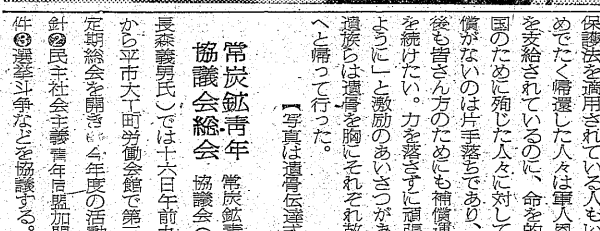 保護法を適用されている人もい
めでたく帰還した人々は軍人恩
を支給されているのに、命を的
国のために殉じた人々に対して
償がないのは片手落ちであり、
後も皆さん方のためにも補償運
を続けたい。力を落さずに頑張
ように」と激励のあいさつがあ
遺族らは遺骨を胸にそれぞれ故
へと帰って行った。
【写真は遺骨伝達式
常炭鉱青年
協議会総会
常炭鉱青
協議会(
長森義男氏)では十六日午前
から平市大工町労働会館で第
定期総会を開き 4年度の活動
針❷民主社会主義青年同盟加盟
件❸選挙斗争などを協議する。